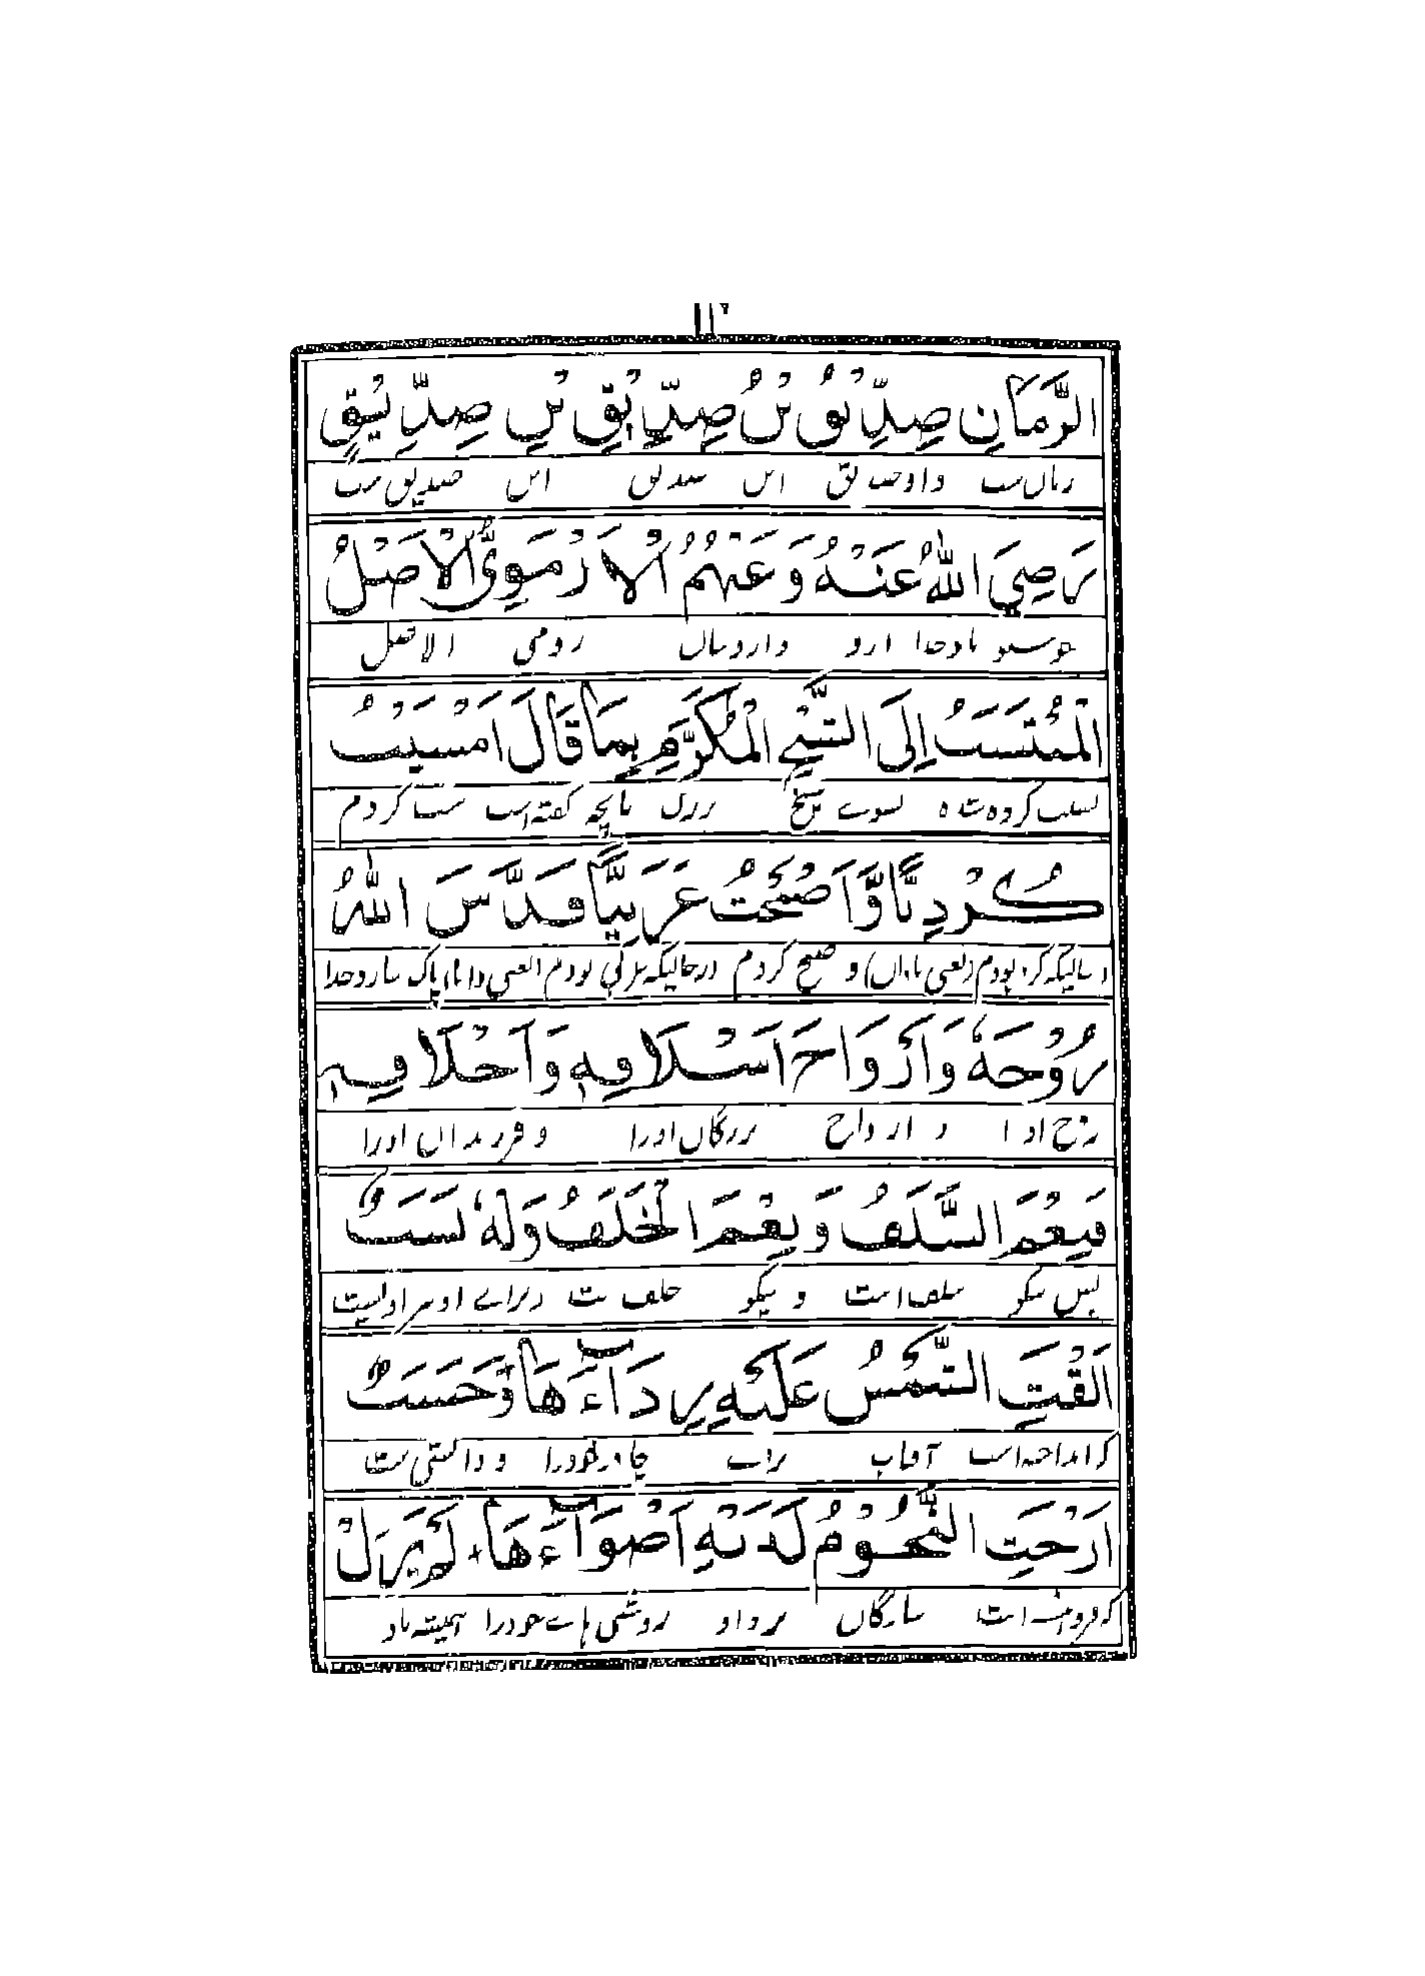 ١١٢
الزَّمَانِ صِدِّيْقُ بْنُ صِدِّيْقِ بْنِ صِدِّيْقٍ
زمان ست و او صدیق ابن صدیق ابن صدیق ست
رَضِيَ اللّٰهُ عَنْهُ وَعَنْهُمُ الْاَرْمَوِيُّ الْاَصْلُ
خوشنود باد خدا ازو و ازوشان رومی الاصل
الْمُنْتَسَبُ اِلَى الشَّيْخِ الْمُكَرَّمِ بِمَا قَالَ اَمْسَيْتُ
نسبت کرده شده بسوے شیخ بزرگ بانچه گفته است شب کردم
كُرْدِيًّا وَّاَصْبَحْتُ عَرَبِيًّا قَدَّسَ اللّٰهُ
کرد بودم (یعنی نادان) و صبح کردم درحالیکه عربی بودم (یعنی دانا) پاک سازد خدا
رُوْحَهٗ وَاَرْوَاحَ اَسْلَافِهٖ وَاَخْلَافِهٖ
روح او را و ارواح بزرگان اورا و فرزندان اورا
فَنِعْمَ السَّلَفُ وَنِعْمَ الْخَلَفُ وَلَهٗ نَسَبٌ
پس نیکو سلف است و نیکو خلف ست و براے او نسبیت
اَلْقَتِ الشَّمْسُ عَلَيْهِ رِدَآءَهَا وَحَسَبٌ
که انداخته است آفتاب براں چادر خود را و ست
اَرْخَتِ النُّجُوْمُ لَدَيْهِ اَضْوَآءَهَا لَمْ يَزَلْ
است ستارگان نزد او روشنی ہاے خود را ہمیشه باد